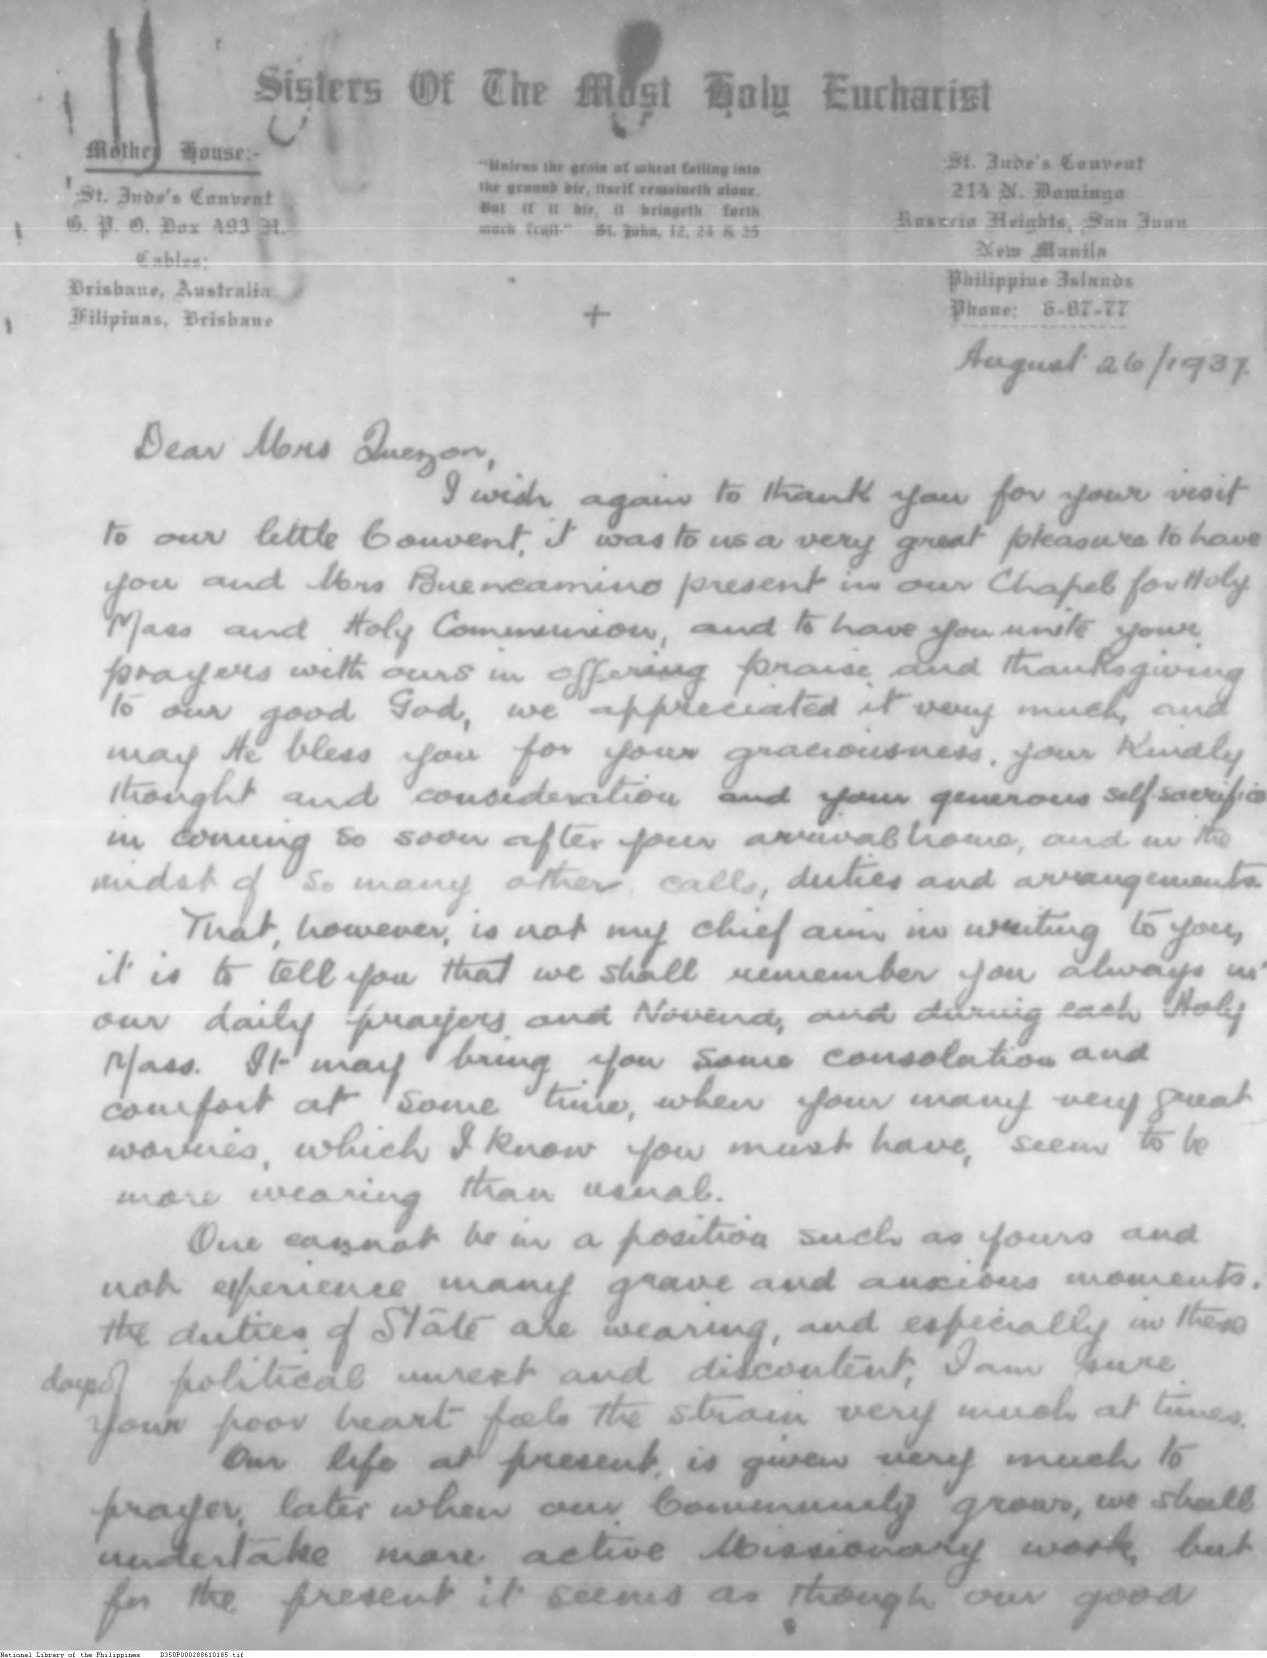 Sisters Of The Most Holy Eucharist
Mother House:-
St. Jude's Convent
G. P. O. Box 493 H.
Cables:
Brisbane, Australia
Filipinas, Brisbane
"Unless the grain of wheat falling into
the ground die, itself remaineth alone.
But if it die, it bringeth forth
much fruit" St. John, 12, 24 & 25
+
St. Jude's Convent
214 N. Domingo
Rosario Heights, San Juan
New Manila
Philippine Islands
Phone: 6-87-77
August 26/1937.
Dear Mrs Quezon,
I wish again to thank you for your visit
to our little Convent, it was to us a very great pleasure to have
you and Mrs Buencamino present in our Chapel for Holy
Mass and Holy Communion, and to have you unite your
prayers with ours in offering praise and thanksgiving
to our good God, we appreciated it very much, and
may He bless you for your graciousness, your kindly
thought and consideration and your generous self sacrifice
in coming so soon after your arrival home, and in the
midst of so many other calls, duties and arrangements.
That, however, is not my chief aim in writing to you,
it is to tell you that we shall remember you always in
our daily prayers and Novena, and during each Holy
Mass. It may bring you some consolation and
comfort at some time, when your many very great
worries, which I know you must have, seem to be
more wearing than usual.
One cannot be in a position such as yours and
not experience many grave and anxious moments.
the duties of State are wearing, and especially in these
days of political unrest and discontent, I am sure
your poor heart feels the strain very much at times.
Our life at present, is given very much to
prayer, later when our Community grows, we shall
undertake more active Missionary work, but
for the present it seems as though our good
National Library of the Philippines D350P000288610185.tif